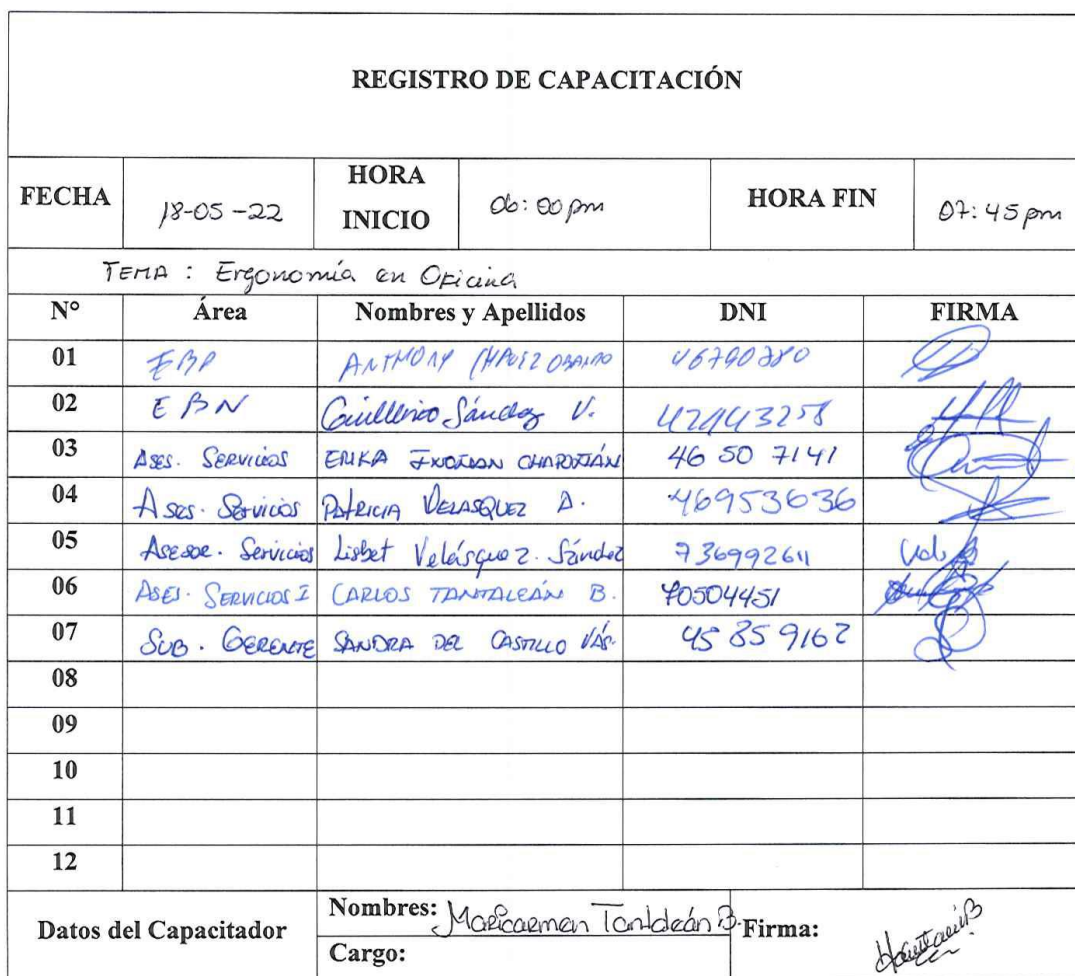 REGISTRO DE CAPACITACIÓN
FECHA 18-05-22 HORA INICIO 06:00 pm HORA FIN 07:45 pm
TEMA : Ergonomía en Oficina
N° Área Nombres y Apellidos DNI FIRMA
01 EBP ANTHONY
02 EBN Guillermo Sánchez V.
03 ASES. SERVICIOS ERIKA 46 50 7141
04 Ases. Servicios PATRICIA VELASQUEZ D. 46953636
05 Asesor. Servicios Lisbet Velásquez. Sánchez 736992611
06 ASES. SERVICIOS I CARLOS TANTALEÁN B. 70504451
07 SUB. GERENTE SANDRA DEL CASTILLO VÁS. 45 85 9162
08
09
10
11
12
Datos del Capacitador Nombres: Maricarmen Tantaleán B. Firma:
Cargo: